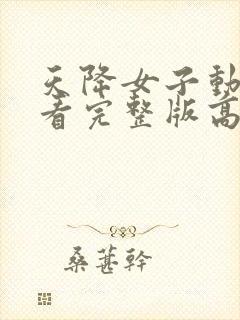 天降女子動
看完整版高
桑葚幹